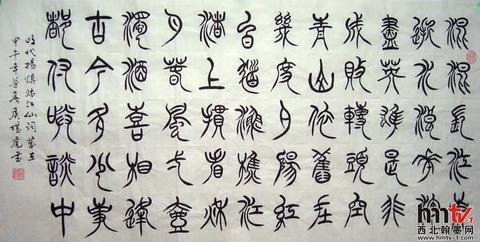 滾滾長江東
逝水浪花淘
盡英雄是非
成敗轉頭空
青山依舊在
幾度夕陽紅
白髮漁樵江
渚上慣看秋
月春風弌壺
濁酒喜相逢
古今多少事
都付笑談中
明代楊慎臨江仙詞
甲午年
hmtv-1
西北翰墨网
www.hmtv-1.com